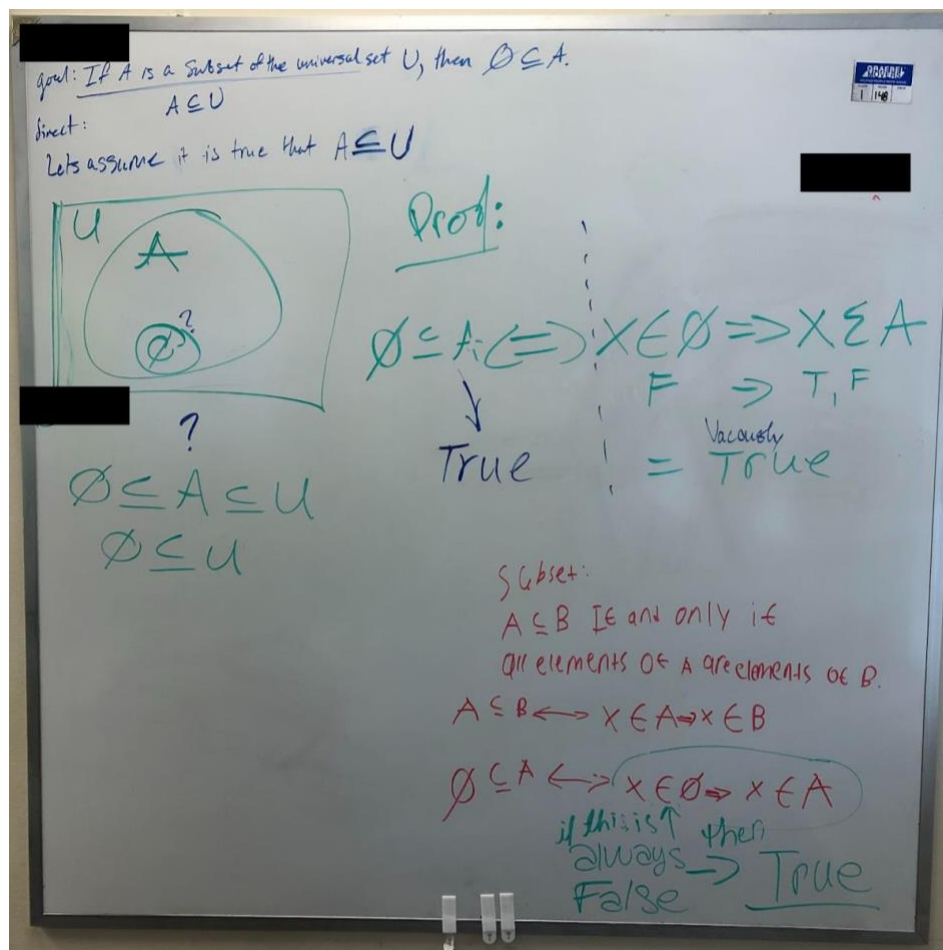 goal: If A is a subset of the universal set U, then ∅ ⊆ A.
A ⊆ U
direct:
Lets assume it is true that A ⊆ U
U
A
∅ ?
?
∅ ⊆ A ⊆ U
∅ ⊆ U
Proof:
∅ ⊆ A ⇔ X ∈ ∅ ⇒ X ∈ A
F ⇒ T, F
True = Vacously True
Subset:
A ⊆ B If and only if
all elements of A are elements of B.
A ⊆ B ↔ x ∈ A ⇒ x ∈ B
∅ ⊆ A ↔ x ∈ ∅ ⇒ x ∈ A
if this is ↑ then
always → True
False
1 148